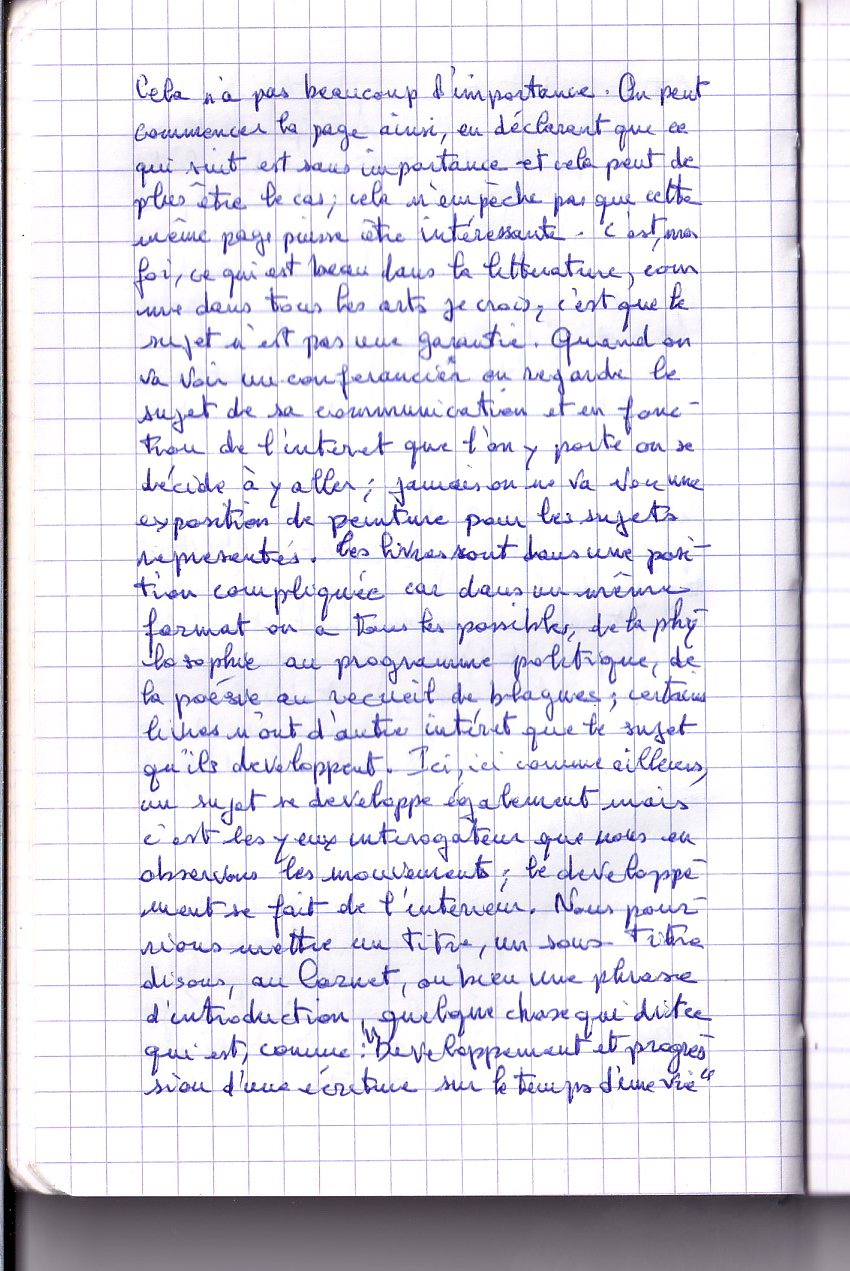 Cela n'a pas beaucoup d'importance. On peut
commencer la page ainsi, en déclarant que ce
qui suit est sans importance et cela peut de
plus être le cas; cela n'empêche pas que cette
même page puisse être intéressante. C'est, ma
foi, ce qui est beau dans la litterature, com
me dans tous les arts je crois; c'est que le
sujet n'est pas une garantie. Quand on
va voir un conferancier on regarde le
sujet de sa communication et en fonc-
tion de l'interet que l'on y porte on se
décide à y aller; jamais on ne va voir une
exposition de peinture pour les sujets
representés. Les livres sont dans une posi-
tion compliquée car dans un même
format on a tous les possibles, de la phy-
losophie au programme politique, de
la poésie au recueil de blagues; certains
livres n'ont d'autre intéret que le sujet
qu'ils developpent. Ici, ici comme ailleurs,
un sujet se developpe également mais
c'est les yeux interogateur que nous en
observons les mouvements; le developpe-
ment se fait de l'interieur. Nous pour-
rions mettre un titre, un sous-titre
disons, au Carnet, ou bien une phrase
d'introduction, quelque chose qui dit ce
qui est, comme: "Developpement et progres-
sion d'une écriture sur le temps d'une vie"